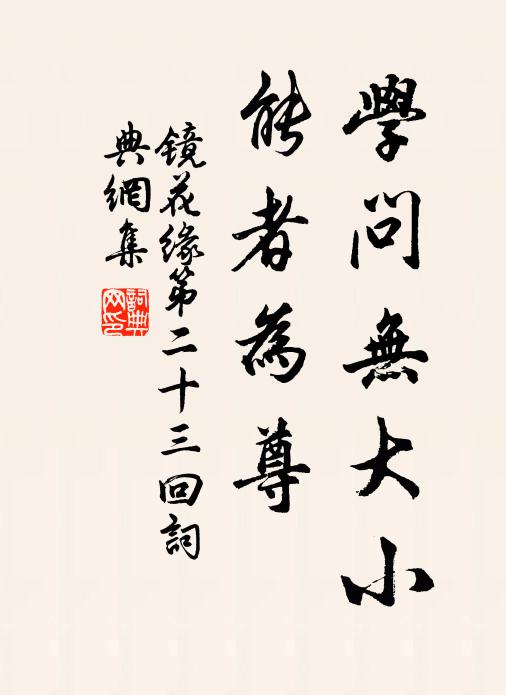 學問無大小
能者為尊
镜花缘第二十三回詞
典網集
詞典
网印